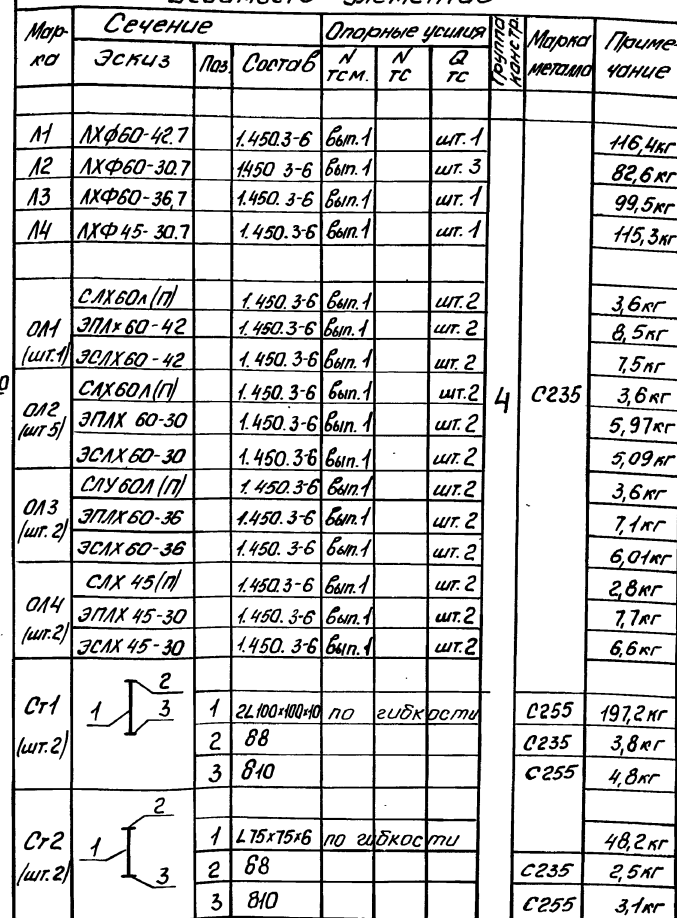 Мар- Сечение Опорные усилия Группа Марка Приме-
ка Эскиз Поз. Состав N тс м. N тс Q тс констр. металла чание
Л1 ЛХФ60-42.7 1.450.3-6 вып.1 шт. 1 116,4кг
Л2 ЛХФ60-30.7 1450 3-6 вып.1 шт. 3 82,6кг
Л3 ЛХФ60-36,7 1.450. 3-6 вып.1 шт. 1 99,5кг
Л4 ЛХФ45-30.7 1.450.3-6 вып.1 шт. 1 115,3кг
СЛХ60Л(П) 1.450. 3-6 вып.1 шт. 2 3,6кг
ОЛ1 ЭПЛх60-42 1.450.3-6 вып.1 шт. 2 8,5кг
(шт.1) ЭСЛХ60-42 1.450.3-6 вып.1 шт. 2 7,5кг
СЛХ60Л(П) 1.450.3-6 вып.1 шт.2 4 С235 3,6кг
ОЛ2 ЭПЛХ 60-30 1.450.3-6 вып.1 шт. 2 5,97кг
(шт 5) ЭСЛХ60-30 1.450.3-6 вып.1 шт. 2 5,09кг
СЛУ60Л(П) 1.450.3-6 вып.1 шт.2 3,6кг
ОЛ3 ЭПЛХ60-36 1.450.3-6 вып.1 шт. 2 7,1кг
(шт. 2) ЭСЛХ60-36 1.450. 3-6 вып.1 шт. 2 6,01кг
СЛХ 45(П) 1.450.3-6 вып.1 шт. 2 2,8кг
ОЛ4 ЭПЛХ 45-30 1.450. 3-6 вып.1 шт. 2 7,7кг
(шт.2) ЭСЛХ 45-30 1.450. 3-6 вып.1 шт.2 6,6кг
2
Ст1 1 3 1 2L100×100×10 по гибкости С255 197,2кг
(шт.2) 2 δ8 С235 3,8кг
3 δ10 С255 4,8кг
2
Ст2 1 1 L75×75×6 по гибкости 48,2кг
(шт.2) 3 2 δ8 С235 2,5кг
3 δ10 С255 3,1кг